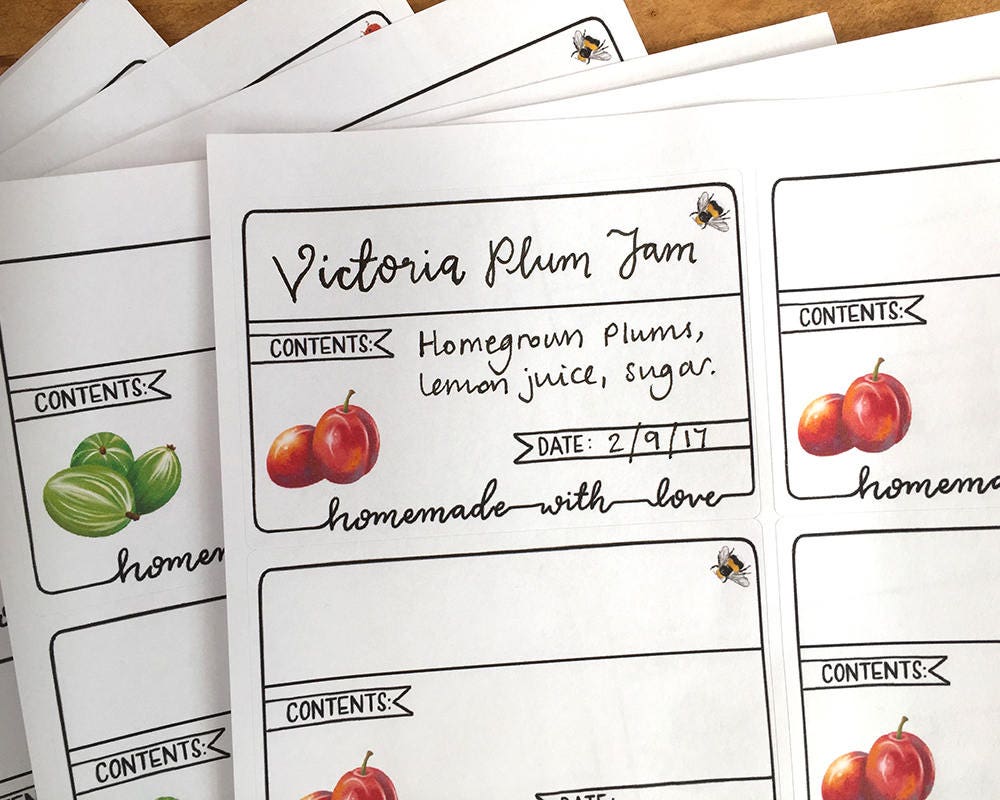 Victoria Plum Jam
CONTENTS:
Homegrown Plums,
lemon juice, sugar.
DATE: 2/9/17
homemade with love
CONTENTS:
homema
CONTENTS:
homem
CONTENTS:
DATE:
CONTENTS:
CONTENTS: